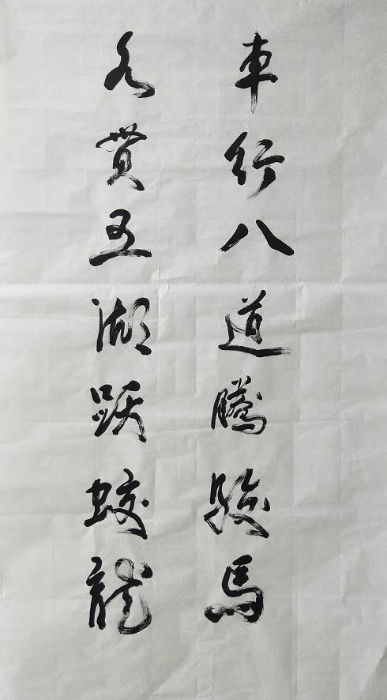 車行八道騰駿馬
水貫五湖跃蛟龍